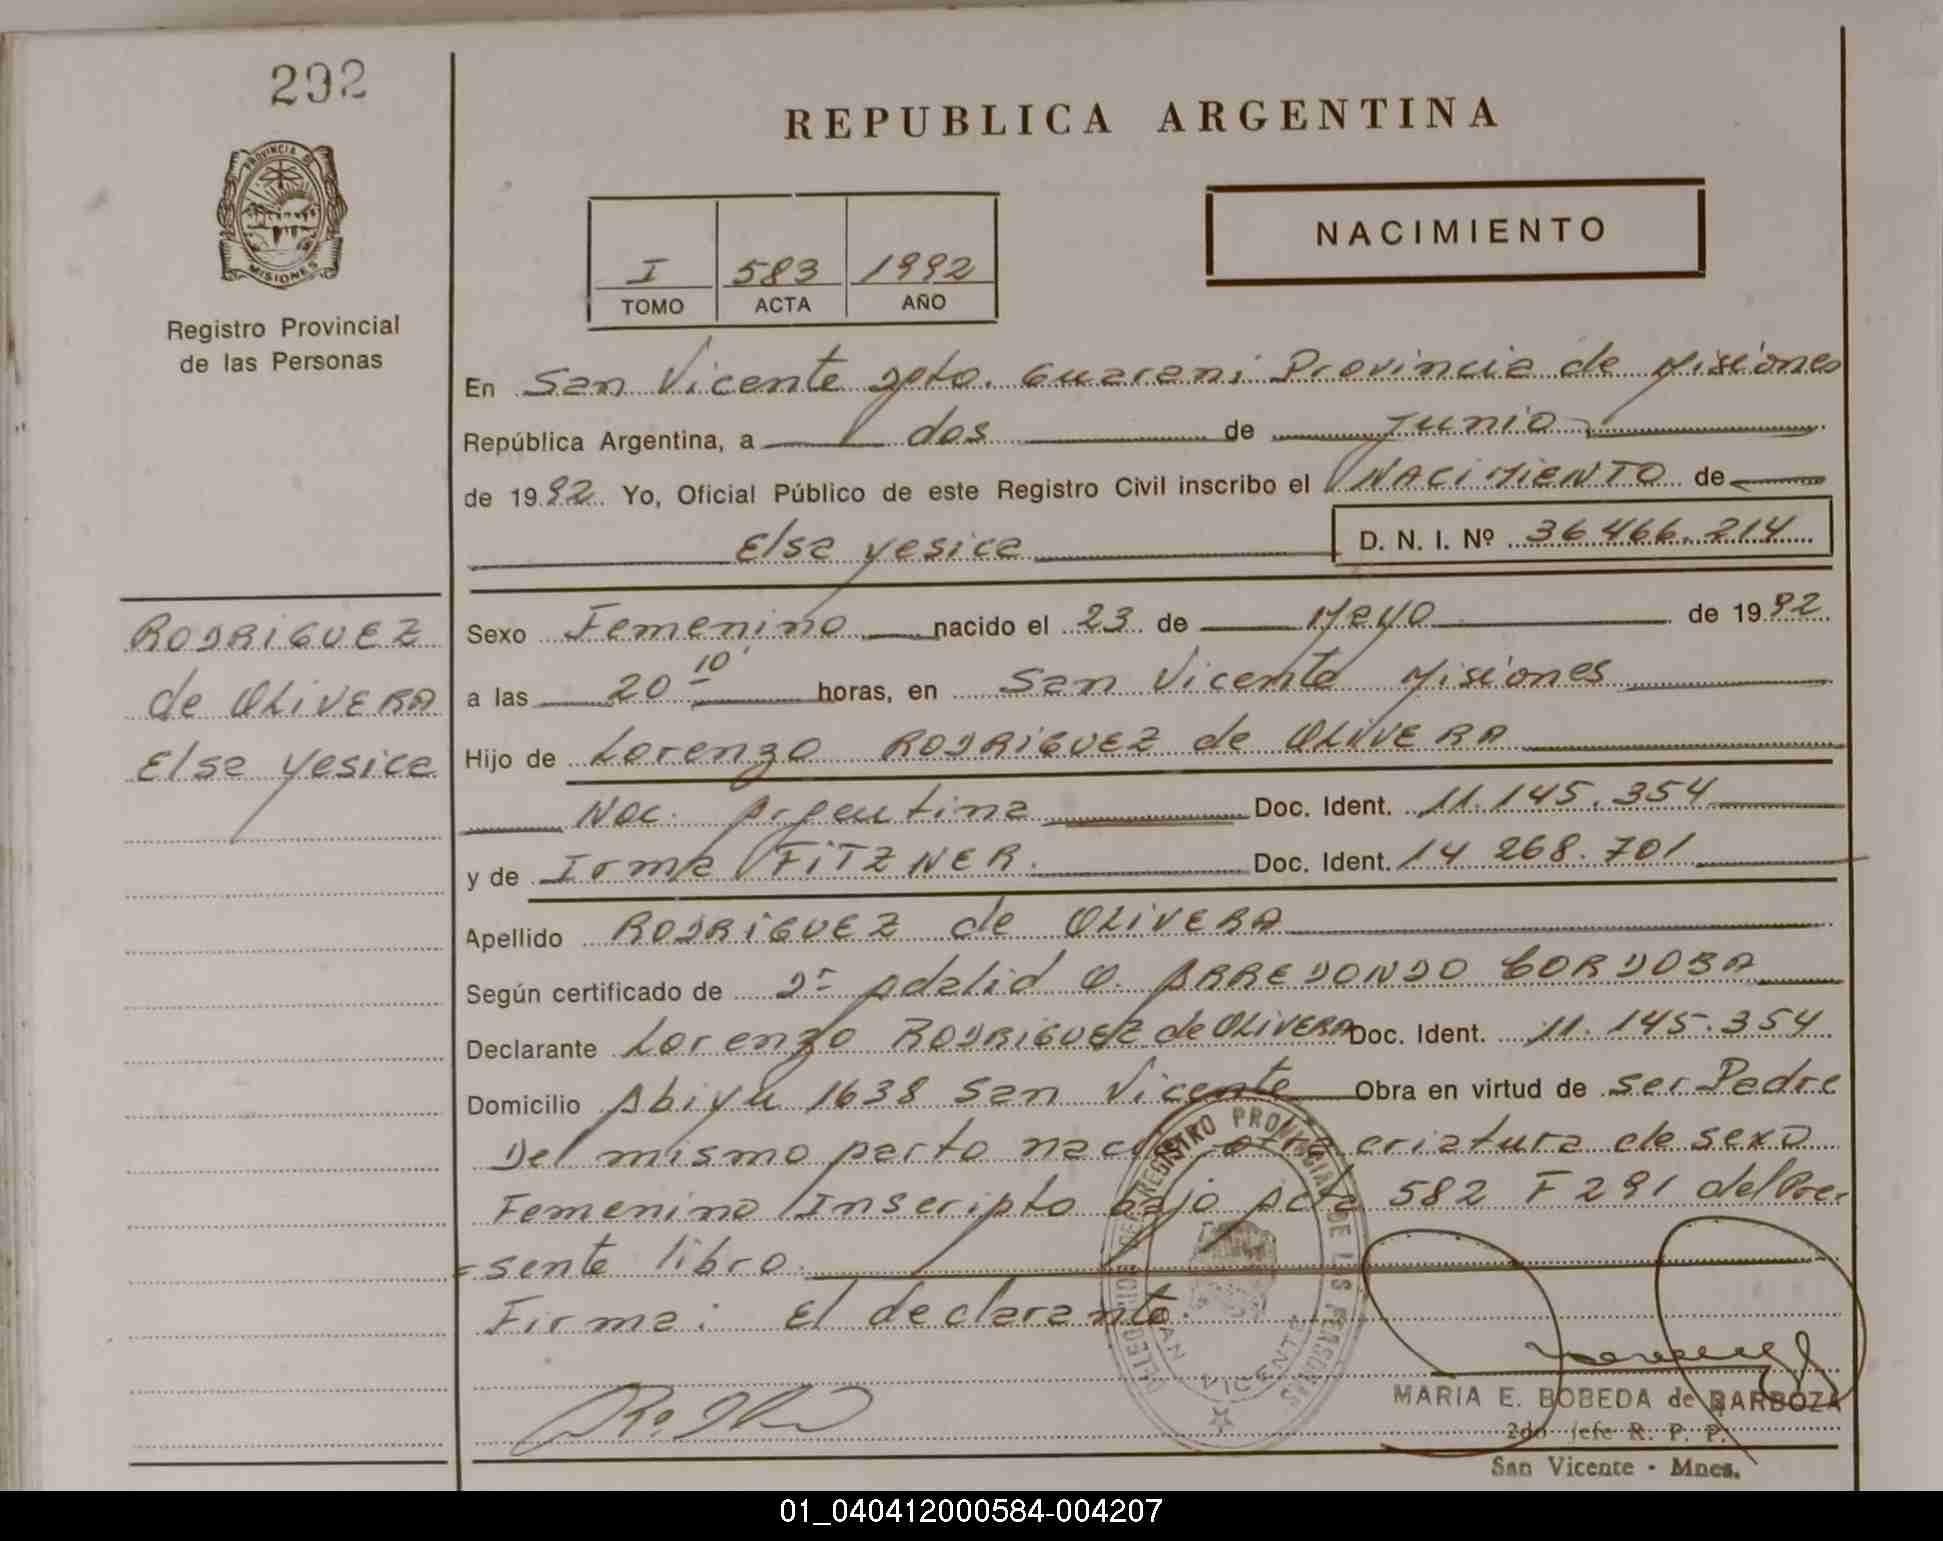 292
REPUBLICA ARGENTINA
PROVINCIA DE
MISIONES
Registro Provincial
de las Personas
I 583 1992
TOMO ACTA AÑO
NACIMIENTO
En San Vicente Dpto. Guarani Provincia de Misiones
República Argentina, a dos de Junio
de 1992. Yo, Oficial Público de este Registro Civil inscribo el NACIMIENTO de
Elsa Yesica D. N. I. Nº 36 466.214
RODRIGUEZ
de OLIVERA
Elsa Yesica
Sexo Femenino nacido el 23 de Mayo de 1992
a las 20 10' horas, en San Vicente Misiones
Hijo de Lorenzo RODRIGUEZ de OLIVERA
Nac. Argentina Doc. Ident. 11.145.354
y de Irma FITZNER. Doc. Ident. 14 268.701
Apellido RODRIGUEZ de OLIVERA
Según certificado de Dr Adalid O. ARREDONDO CORDOBA
Declarante Lorenzo RODRIGUEZ de OLIVERA Doc. Ident. 11.145.354
Domicilio Abiyu 1638 San Vicente Obra en virtud de ser Padre
Del mismo parto nació otra criatura de sexo
Femenino Inscripto bajo Acta 582 F 291 del Pre-
=sente libro.
Firma: El declarante.
REGISTRO PROVINCIAL DE LAS PERSONAS
SAN VICENTE
MARIA E. BOBEDA de BARBOZA
2do Jefe R. P. P.
San Vicente - Mnes.
01_040412000584-004207